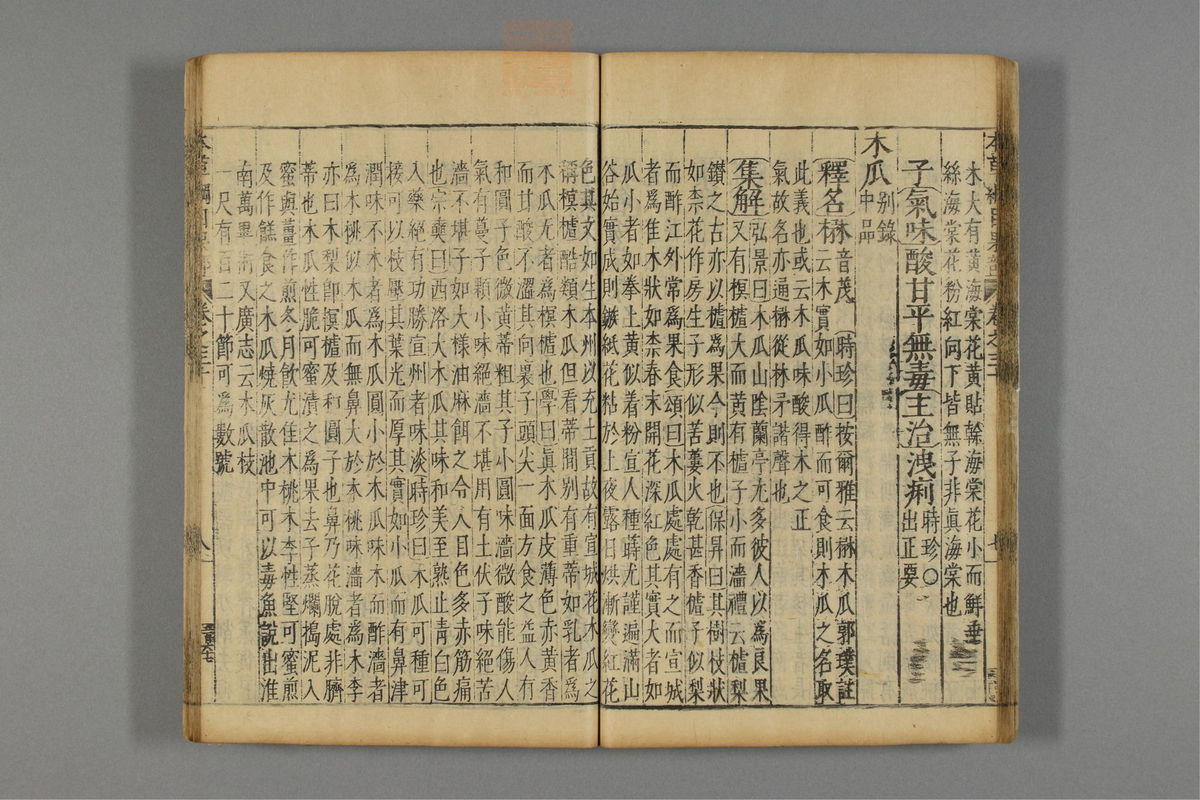 木大有黃海棠花黃貼幹海棠花小而鮮垂
絲海棠花粉紅向下皆無子非真海棠也
子氣味酸甘平無毒主治洩痢時珍○出正要
木瓜别錄中品
釋名楙音茂時珍曰按爾雅云楙木瓜郭璞註
云木實如小瓜酢而可食則木瓜之名取
此義也或云木瓜味酸得木之正
氣故名亦通楙從林矛諧聲也
集解弘景曰木瓜山陰蘭亭尤多彼人以為良果
又有榠樝大而黃有樝子小而濇禮云樝梨
鑽之古亦以樝為果今則不也保昇曰其樹枝狀
如柰花作房生子形似苦蔞火乾甚香樝子似梨
而酢江外常為果食頌曰木瓜處處有之而宣城
者為佳木狀如柰春末開花深紅色其實大者如
瓜小者如拳上黃似着粉宣人種蒔尤謹遍滿山
谷始實成則鏃紙花粘於上夜露日烘漸變紅花
色其文如生本州以充土貢故有宣城花木瓜之
稱榠樝酷類木瓜但看蒂間别有重蒂如乳者為
木瓜无者為榠樝也斅曰真木瓜皮薄色赤黃香
而甘酸不濇其向裏子頭尖一面方食之益人有
和圓子色微黃蒂粗其子小圓味濇微酸能傷人
氣有蔓子顆小味絕濇不堪用有土伏子味絕苦
濇不堪子如大樣油麻餌之令人目色多赤筋痛
也宗奭曰西洛大木瓜其味和美至熟止青白色
入藥絕有功勝宣州者味淡時珍曰木瓜可種可
接可以枝壓其葉光而厚其實如小瓜而有鼻津
潤味不木者為木瓜圓小於木瓜味木而酢濇者
為木桃似木瓜而無鼻大於木桃味濇者為木李
亦曰木梨卽榠樝及和圓子也鼻乃花脫處非臍
蒂也木瓜性脆可蜜漬之為果去子蒸爛搗泥入
蜜與薑作煎冬月飲尤佳木桃木李性堅可蜜煎
及作餻食之木瓜燒灰散池中可以毒魚說出淮
南萬畢術又廣志云木瓜枝
一尺有百二十節可為數號